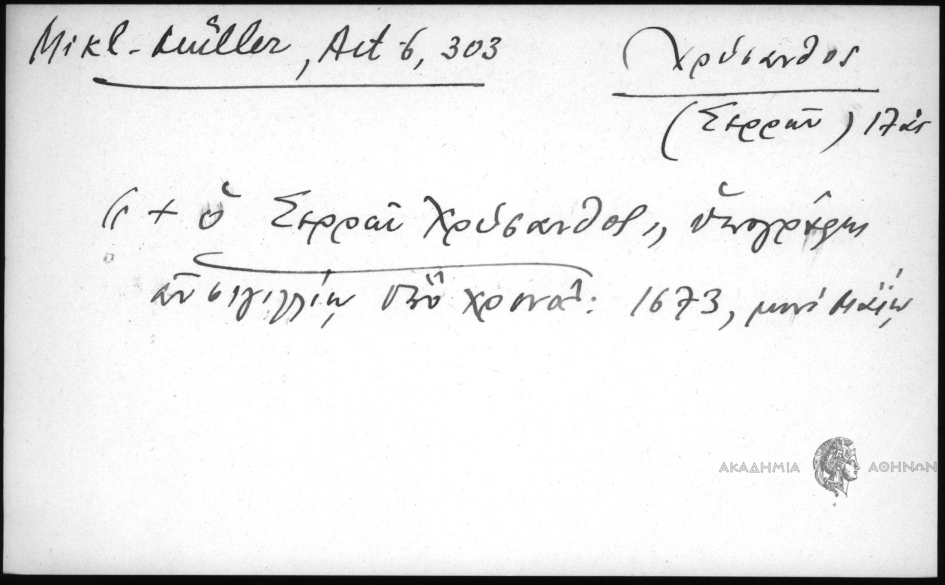 Mikl-Müller, Act 6, 303
Χρύσανθος
(Σερρῶν) 17ος
"+ ὁ Σερρῶν Χρύσανθος", ὑπογράφει
ἐν σιγιλλίῳ ὑπὸ χρονολ: 1673, μηνὶ Μαΐῳ
ΑΚΑΔΗΜΙΑ ΑΘΗΝΩΝ